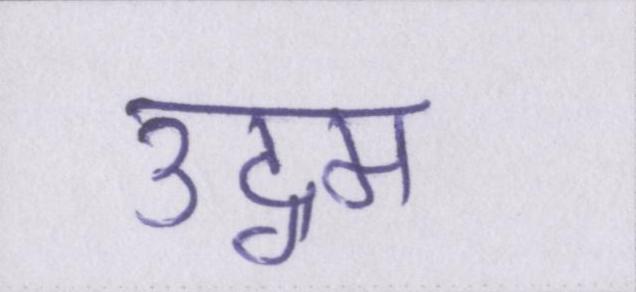 उद्गम